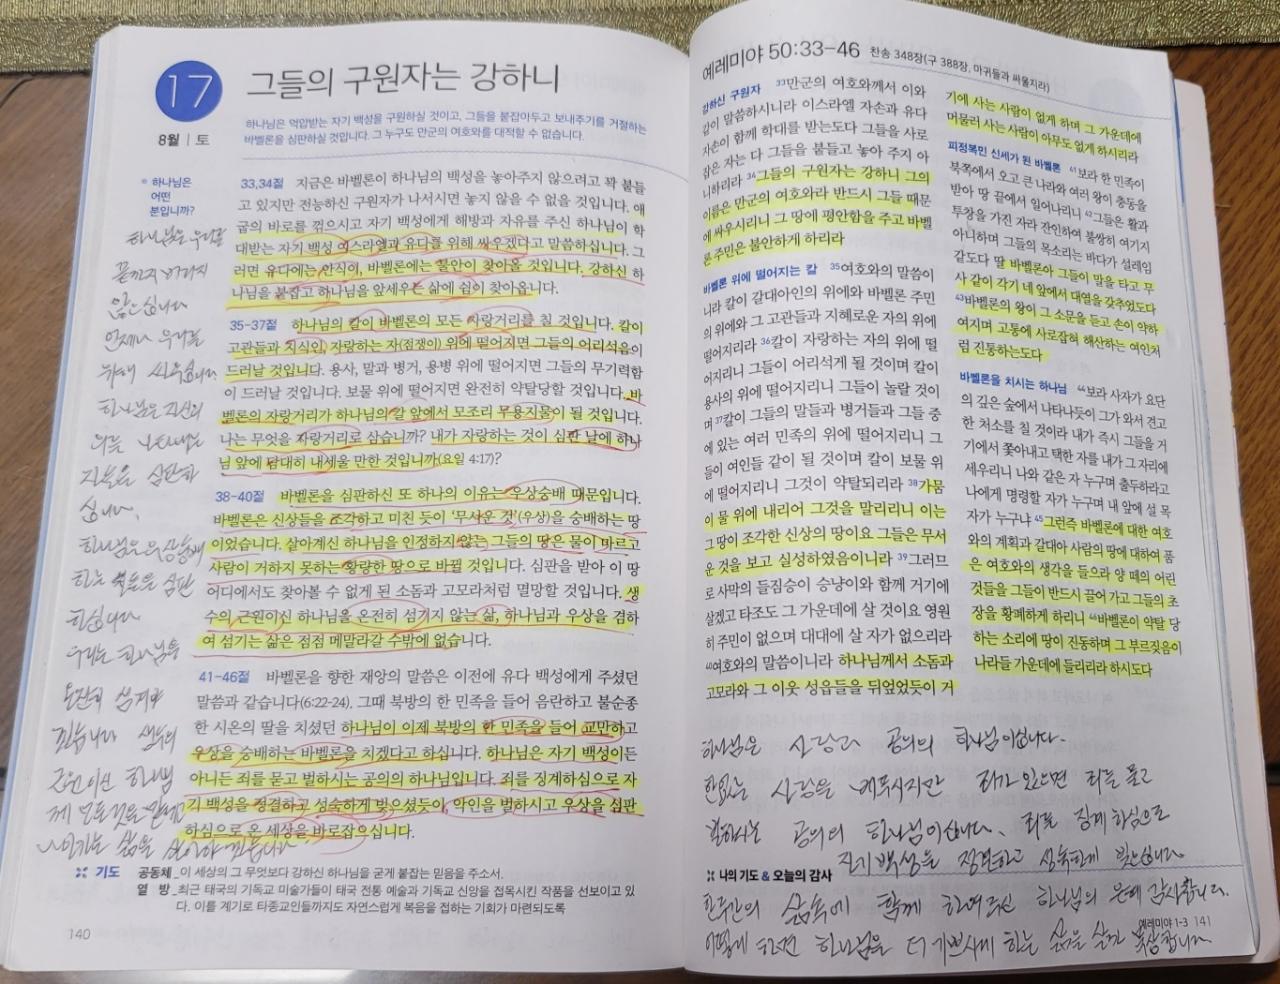 17
8월 | 토
그들의 구원자는 강하니
하나님은 억압받는 자기 백성을 구원하실 것이고, 그들을 붙잡아두고 보내주기를 거절하는
바벨론을 심판하실 것입니다. 그 누구도 만군의 여호와를 대적할 수 없습니다.
하나님은
어떤
분입니까?
하나님은 우리를
끝까지 버리지
않으십니다
언제나 우리를
위해 싸우십니다
하나님은 자신의
의를 나타내는
자들을 심판하
십니다.
하나님은 우상숭배
하는 것들을 심판
하십니다
우리는 하나님을
온전히 섬겨야
겠습니다 생수의
근원이신 하나님
께 모든것을 맡기고
나아가는 삶을 살아야 겠습니다
33,34절 지금은 바벨론이 하나님의 백성을 놓아주지 않으려고 꽉 붙들
고 있지만 전능하신 구원자가 나서시면 놓지 않을 수 없을 것입니다. 애
굽의 바로를 꺾으시고 자기 백성에게 해방과 자유를 주신 하나님이 학
대받는 자기 백성 이스라엘과 유다를 위해 싸우겠다고 말씀하십니다. 그
러면 유다에는 안식이, 바벨론에는 불안이 찾아올 것입니다. 강하신 하
나님을 붙잡고 하나님을 앞세우는 삶에 쉼이 찾아옵니다.
35-37절 하나님의 칼이 바벨론의 모든 자랑거리를 칠 것입니다. 칼이
고관들과 지식인, 자랑하는 자(점쟁이) 위에 떨어지면 그들의 어리석음이
드러날 것입니다. 용사, 말과 병거, 용병 위에 떨어지면 그들의 무기력함
이 드러날 것입니다. 보물 위에 떨어지면 완전히 약탈당할 것입니다. 바
벨론의 자랑거리가 하나님의 칼 앞에서 모조리 무용지물이 될 것입니다.
나는 무엇을 자랑거리로 삼습니까? 내가 자랑하는 것이 심판 날에 하나
님 앞에 담대히 내세울 만한 것입니까(요일 4:17)?
38-40절 바벨론을 심판하신 또 하나의 이유는 우상숭배 때문입니다.
바벨론은 신상들을 조각하고 미친 듯이 '무서운 것'(우상)을 숭배하는 땅
이었습니다. 살아계신 하나님을 인정하지 않는 그들의 땅은 물이 마르고
사람이 거하지 못하는 황량한 땅으로 바뀔 것입니다. 심판을 받아 이 땅
어디에서도 찾아볼 수 없게 된 소돔과 고모라처럼 멸망할 것입니다. 생
수의 근원이신 하나님을 온전히 섬기지 않는 삶, 하나님과 우상을 겸하
여 섬기는 삶은 점점 메말라갈 수밖에 없습니다.
41-46절 바벨론을 향한 재앙의 말씀은 이전에 유다 백성에게 주셨던
말씀과 같습니다(6:22-24). 그때 북방의 한 민족을 들어 음란하고 불순종
한 시온의 딸을 치셨던 하나님이 이제 북방의 한 민족을 들어 교만하고
우상을 숭배하는 바벨론을 치겠다고 하십니다. 하나님은 자기 백성이든
아니든 죄를 묻고 벌하시는 공의의 하나님입니다. 죄를 징계하심으로 자
기 백성을 정결하고 성숙하게 빚으셨듯이, 악인을 벌하시고 우상을 심판
하심으로 온 세상을 바로잡으십니다.
기도 공동체_이 세상의 그 무엇보다 강하신 하나님을 굳게 붙잡는 믿음을 주소서.
열 방_최근 태국의 기독교 미술가들이 태국 전통 예술과 기독교 신앙을 접목시킨 작품을 선보이고 있
다. 이를 계기로 타종교인들까지도 자연스럽게 복음을 접하는 기회가 마련되도록
140
예레미야 50:33-46 찬송 348장(구 388장, 마귀들과 싸울지라)
강하신 구원자 33만군의 여호와께서 이와
같이 말씀하시니라 이스라엘 자손과 유다
자손이 함께 학대를 받는도다 그들을 사로
잡은 자는 다 그들을 붙들고 놓아 주지 아
니하리라 34그들의 구원자는 강하니 그의
이름은 만군의 여호와라 반드시 그들 때문
에 싸우시리니 그 땅에 평안함을 주고 바벨
론 주민은 불안하게 하리라
바벨론 위에 떨어지는 칼 35여호와의 말씀이
니라 칼이 갈대아인의 위에와 바벨론 주민
의 위에와 그 고관들과 지혜로운 자의 위에
떨어지리라 36칼이 자랑하는 자의 위에 떨
어지리니 그들이 어리석게 될 것이며 칼이
용사의 위에 떨어지리니 그들이 놀랄 것이
며 37칼이 그들의 말들과 병거들과 그들 중
에 있는 여러 민족의 위에 떨어지리니 그
들이 여인들 같이 될 것이며 칼이 보물 위
에 떨어지리니 그것이 약탈되리라 38가뭄
이 물 위에 내리어 그것을 말리리니 이는
그 땅이 조각한 신상의 땅이요 그들은 무서
운 것을 보고 실성하였음이니라 39그러므
로 사막의 들짐승이 승냥이와 함께 거기에
살겠고 타조도 그 가운데에 살 것이요 영원
히 주민이 없으며 대대에 살 자가 없으리라
40여호와의 말씀이니라 하나님께서 소돔과
고모라와 그 이웃 성읍들을 뒤엎었듯이 거
기에 사는 사람이 없게 하며 그 가운데에
머물러 사는 사람이 아무도 없게 하시리라
피정복민 신세가 된 바벨론 41보라 한 민족이
북쪽에서 오고 큰 나라와 여러 왕이 충동을
받아 땅 끝에서 일어나리니 42그들은 활과
투창을 가진 자라 잔인하여 불쌍히 여기지
아니하며 그들의 목소리는 바다가 설레임
같도다 딸 바벨론아 그들이 말을 타고 무
사 같이 각기 네 앞에서 대열을 갖추었도다
43바벨론의 왕이 그 소문을 듣고 손이 약하
여지며 고통에 사로잡혀 해산하는 여인처
럼 진통하는도다
바벨론을 치시는 하나님 44보라 사자가 요단
의 깊은 숲에서 나타나듯이 그가 와서 견고
한 처소를 칠 것이라 내가 즉시 그들을 거
기에서 쫓아내고 택한 자를 내가 그 자리에
세우리니 나와 같은 자 누구며 출두하라고
나에게 명령할 자가 누구며 내 앞에 설 목
자가 누구냐 45그런즉 바벨론에 대한 여호
와의 계획과 갈대아 사람의 땅에 대하여 품
은 여호와의 생각을 들으라 양 떼의 어린
것들을 그들이 반드시 끌어 가고 그들의 초
장을 황폐하게 하리니 46바벨론이 약탈 당
하는 소리에 땅이 진동하며 그 부르짖음이
나라들 가운데에 들리리라 하시도다
하나님은 사랑과 공의의 하나님이십니다.
한없는 사랑을 베푸시지만 죄가 있으면 죄를 묻고
벌하시는 공의의 하나님이십니다. 죄를 징계하심으로
자기백성을 정결하고 성숙하게 빚으십니다
나의 기도 & 오늘의 감사
한주간의 삶속에 함께 하여주신 하나님의 은혜 감사합니다.
어떻게 하면 하나님을 더 기쁘시게 하는 삶을 살지 묵상합니다
예레미야 1-3 141